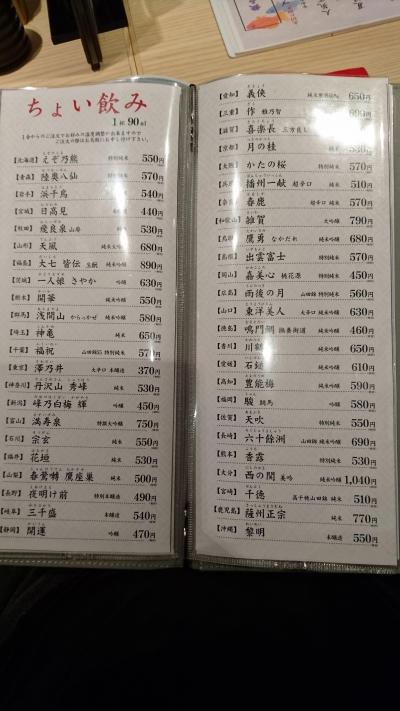 ちょい飲み
1杯 90ml
【北海道】 えぞ乃熊 特別純米 550円
【青森】 陸奥八仙 特別純米 570円
【岩手】 浜千鳥 540円
【宮城】 日高見 440円
【秋田】 飛良泉 山廃 純米 530円
【山形】 大風 純米大吟醸 680円
【福島】 大七 皆伝 生酛 純米吟醸 890円
【茨城】 一人娘 さやか 吟醸 630円
【栃木】 開華 純米吟醸 550円
【群馬】 浅間山 からっかぜ 純米吟醸 580円
【埼玉】 神亀 純米 650円
【千葉】 福祝 山田錦55 特別純米 570円
【東京】 澤乃井 大辛口 本醸造 370円
【神奈川】 丹沢山 秀峰 純米 530円
【新潟】 峰乃白梅 輝 吟醸 450円
【富山】 満寿泉 特撰大吟醸 750円
【石川】 宗玄 純米 550円
【福井】 花垣 純米 530円
【山梨】 春鶯囀 鷹座巣 純米 500円
【長野】 夜明け前 特別本醸造 490円
【岐阜】 三千盛 本醸造 540円
【静岡】 開運 吟醸 470円
【愛知】 義侠 650円
【三重】 作 雅乃智 690円
【滋賀】 喜楽長
【京都】 月の桂
かたの桜 特別純米 570円
播州一献 超辛口 純米 510円
春鹿 超辛口 純米 570円
【和歌山】 雑賀 大吟醸 790円
鷹勇 なかだれ 純米吟醸 680円
【島根】 出雲富士 特別純米 570円
【岡山】 嘉美心 桃花源 特別純米 450円
【広島】 雨後の月 山田錦 特別純米 560円
【山口】 東洋美人 大辛口 純米吟醸 630円
【徳島】 鳴門鯛 撫養街道 純米吟醸 460円
【香川】 川鶴 650円
【愛媛】 石鎚 純米吟醸 610円
【高知】 豊能梅 純米吟醸 590円
【福岡】 駿 吟醸 580円
【佐賀】 天吹 特別純米 550円
【長崎】 六十餘洲 山田錦 純米吟醸 690円
【熊本】 香露 特別純米 530円
【大分】 西の関 美吟 純米吟醸 1,040円
【宮崎】 千徳 高千穂山田錦 純米 510円
【鹿児島】 薩州正宗 純米 770円
【沖縄】 黎明 本醸造 550円